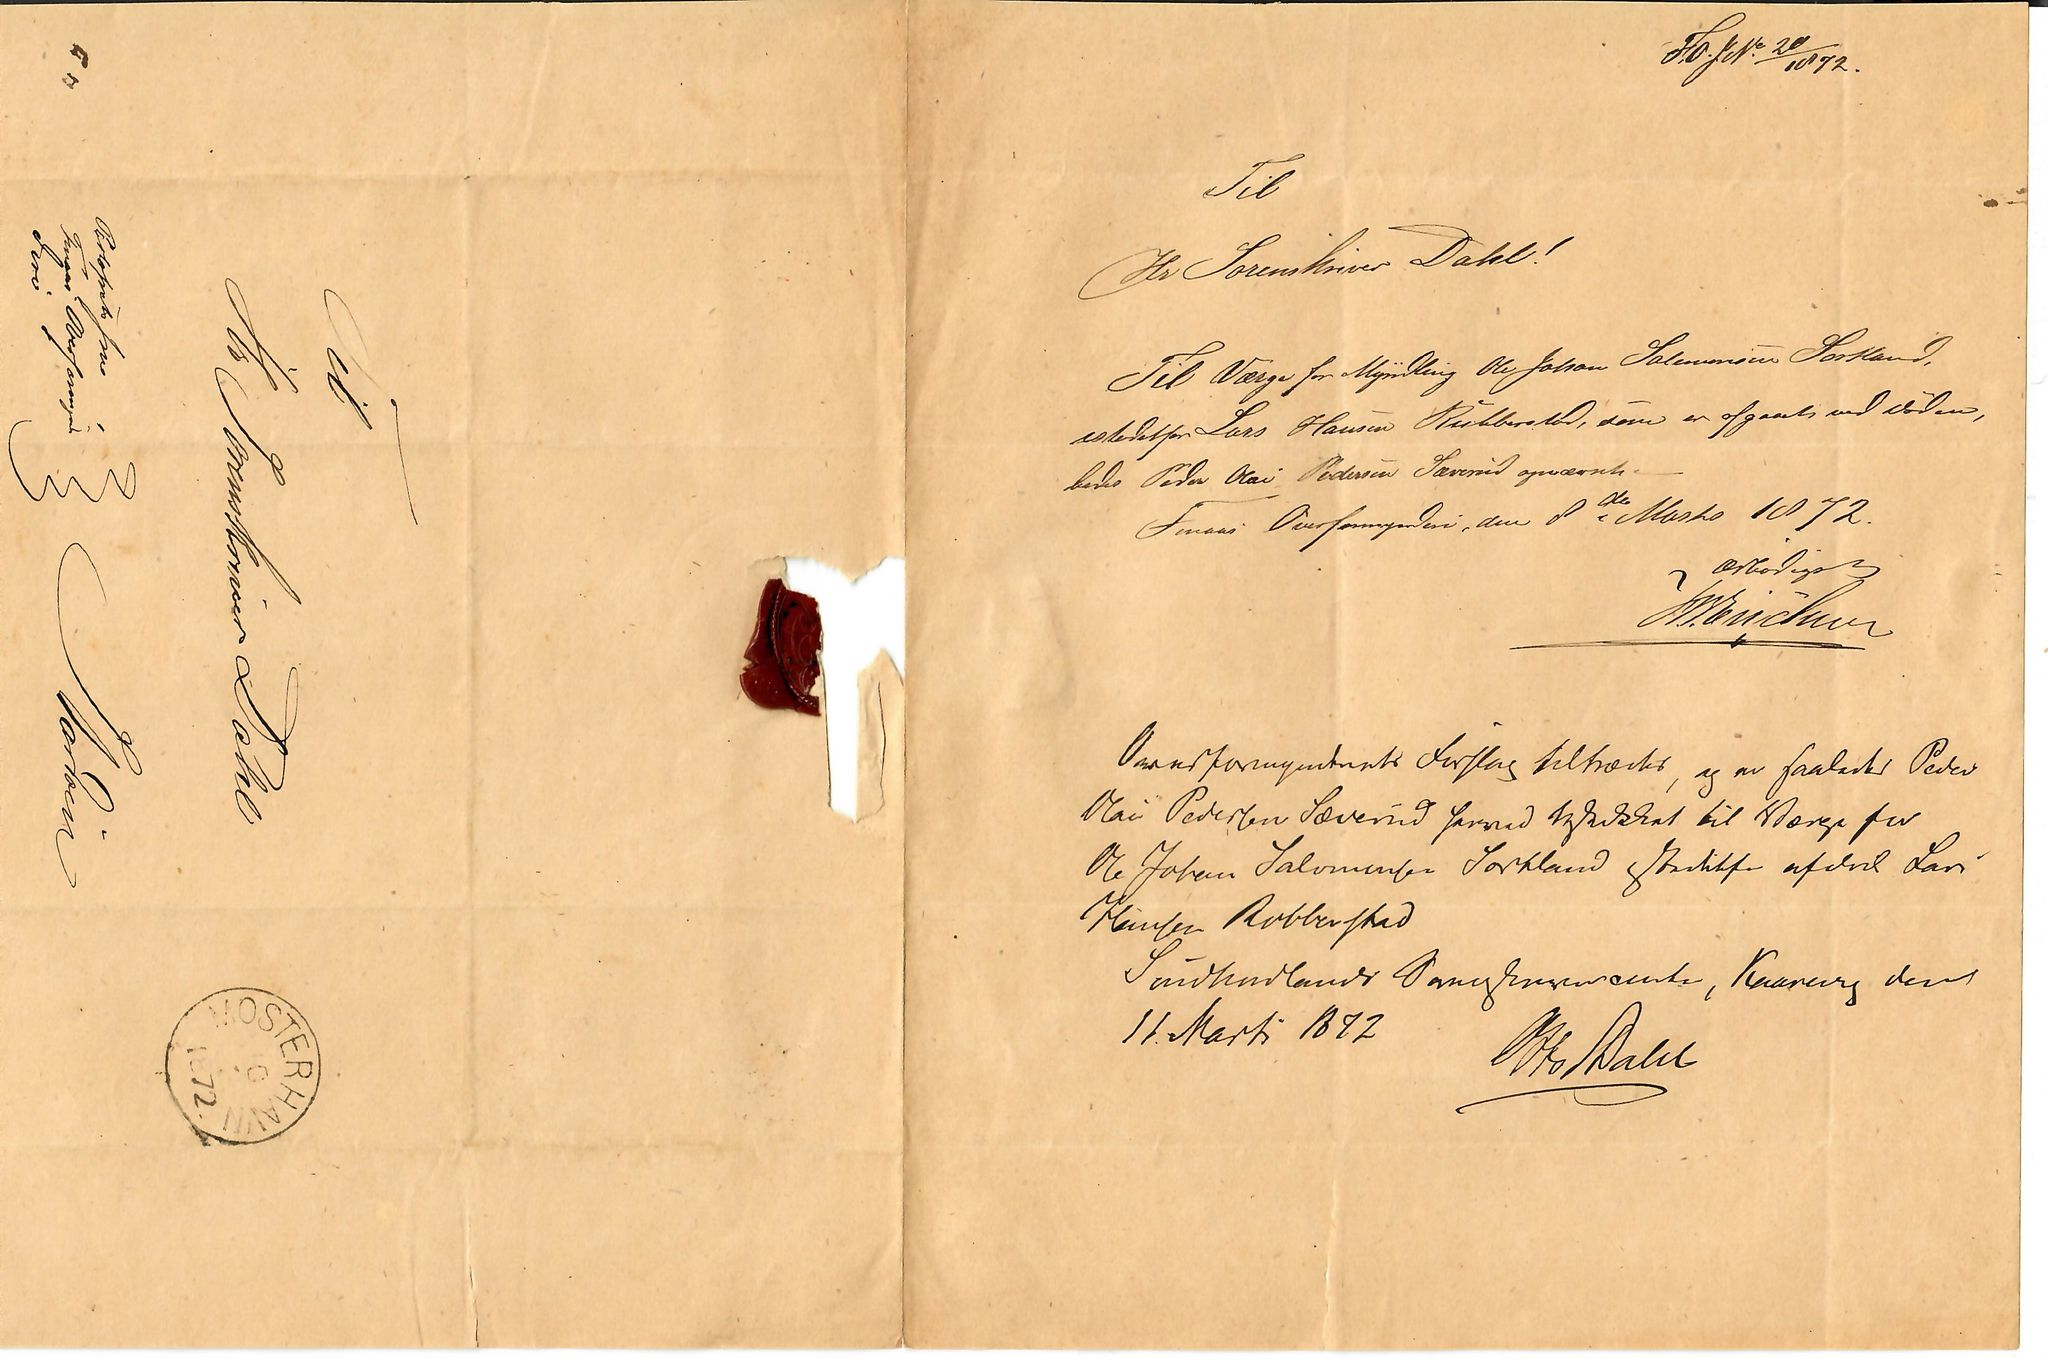 F.O. J.No. 20/1872.
Til
Hr Sorenskriver Dahl!
Til Værge for Myndling Ole Johan Salomonsen Sortland,
istedetfor Lars Hansen Rubberstad, som er afgaaet ved Døden,
bedes Peder Olai Pedersen Sæverud opnævnt.
Finaas Overformynderi, den 8de Marts 1872.
ærbødigst
Overformynderiets Forslag tiltrædes, og er saaledes Peder
Olai Pedersen Sæverud herved beskikket til Værge for
Ole Johan Salomonsen Sortland istedetfor afdøde Lars
Hansen Robberstad
Søndhordlands Sorenskriverembede, den
11. Marts 1872
Otto Dahl
Til
Hr Sorenskriver Dahl
Portofrit fra
Finaas Overformyn-
deri
MOSTERHAVN
1872.